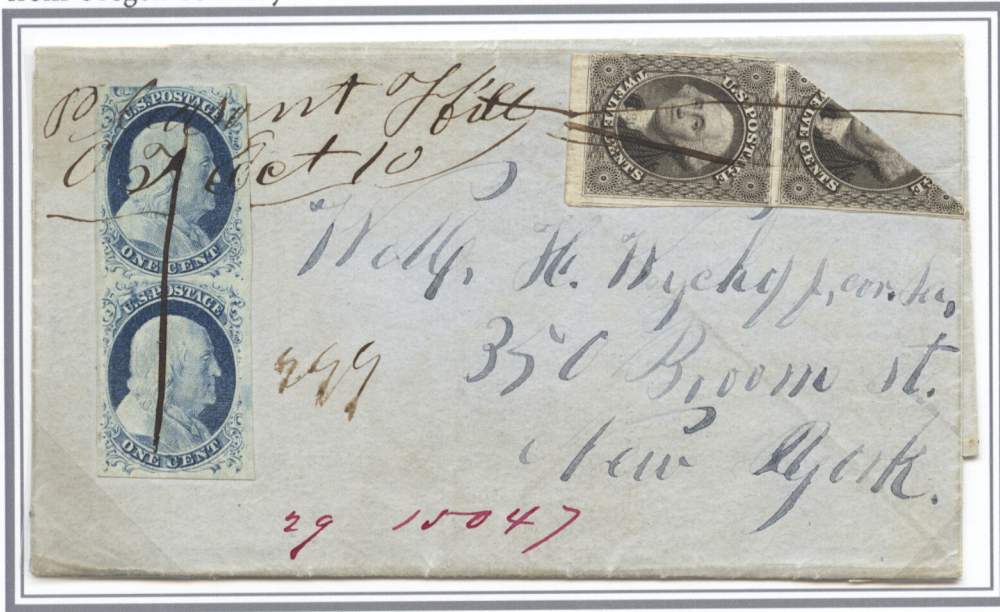 Pleasant Hill
O T Oct 10
U.S. POSTAGE
ONE CENT
U.S. POSTAGE
ONE CENT
U.S. POSTAGE
TWELVE CENTS
TWELVE CENTS
H. Wyckoff, cor. Sec,
350 Broom st.
New York.
299
29 15047